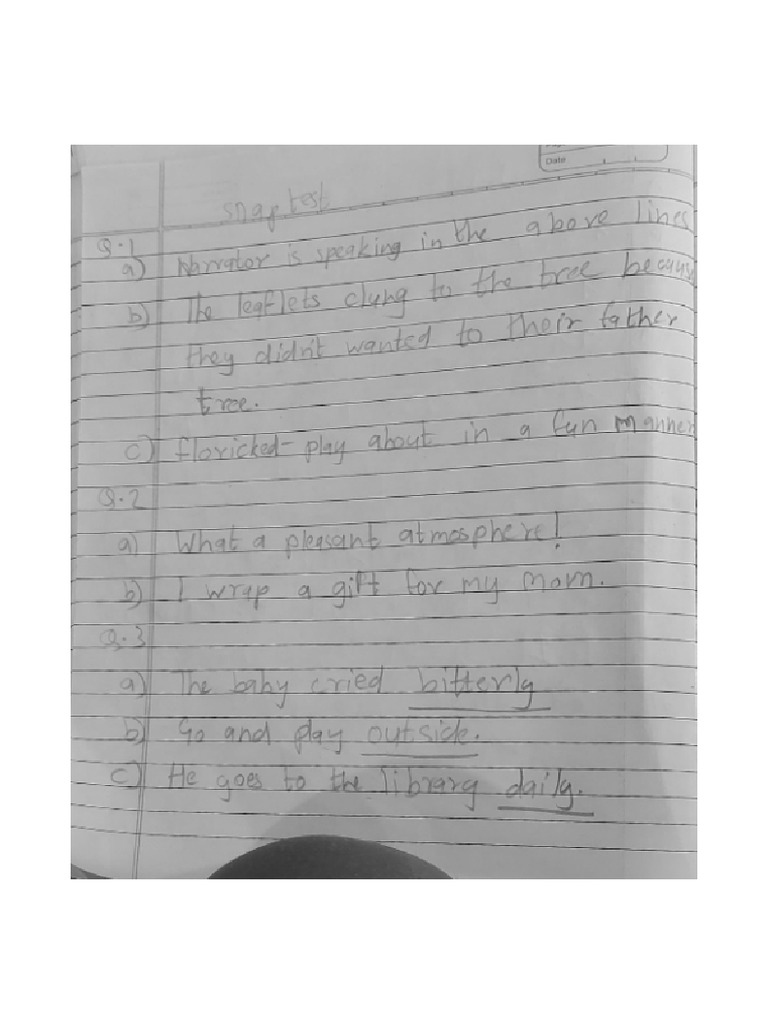 Date
snap test
Q.1
a) Narrator is speaking in the above lines
b) The leaflets clung to the tree because
they didn't wanted to their father
tree.
c) floricked - play about in a fun manner
Q.2
a) What a pleasant atmosphere!
b) I wrap a gift for my mom.
Q.3
a) The baby cried bitterly
b) Go and play outside.
c) He goes to the library daily.